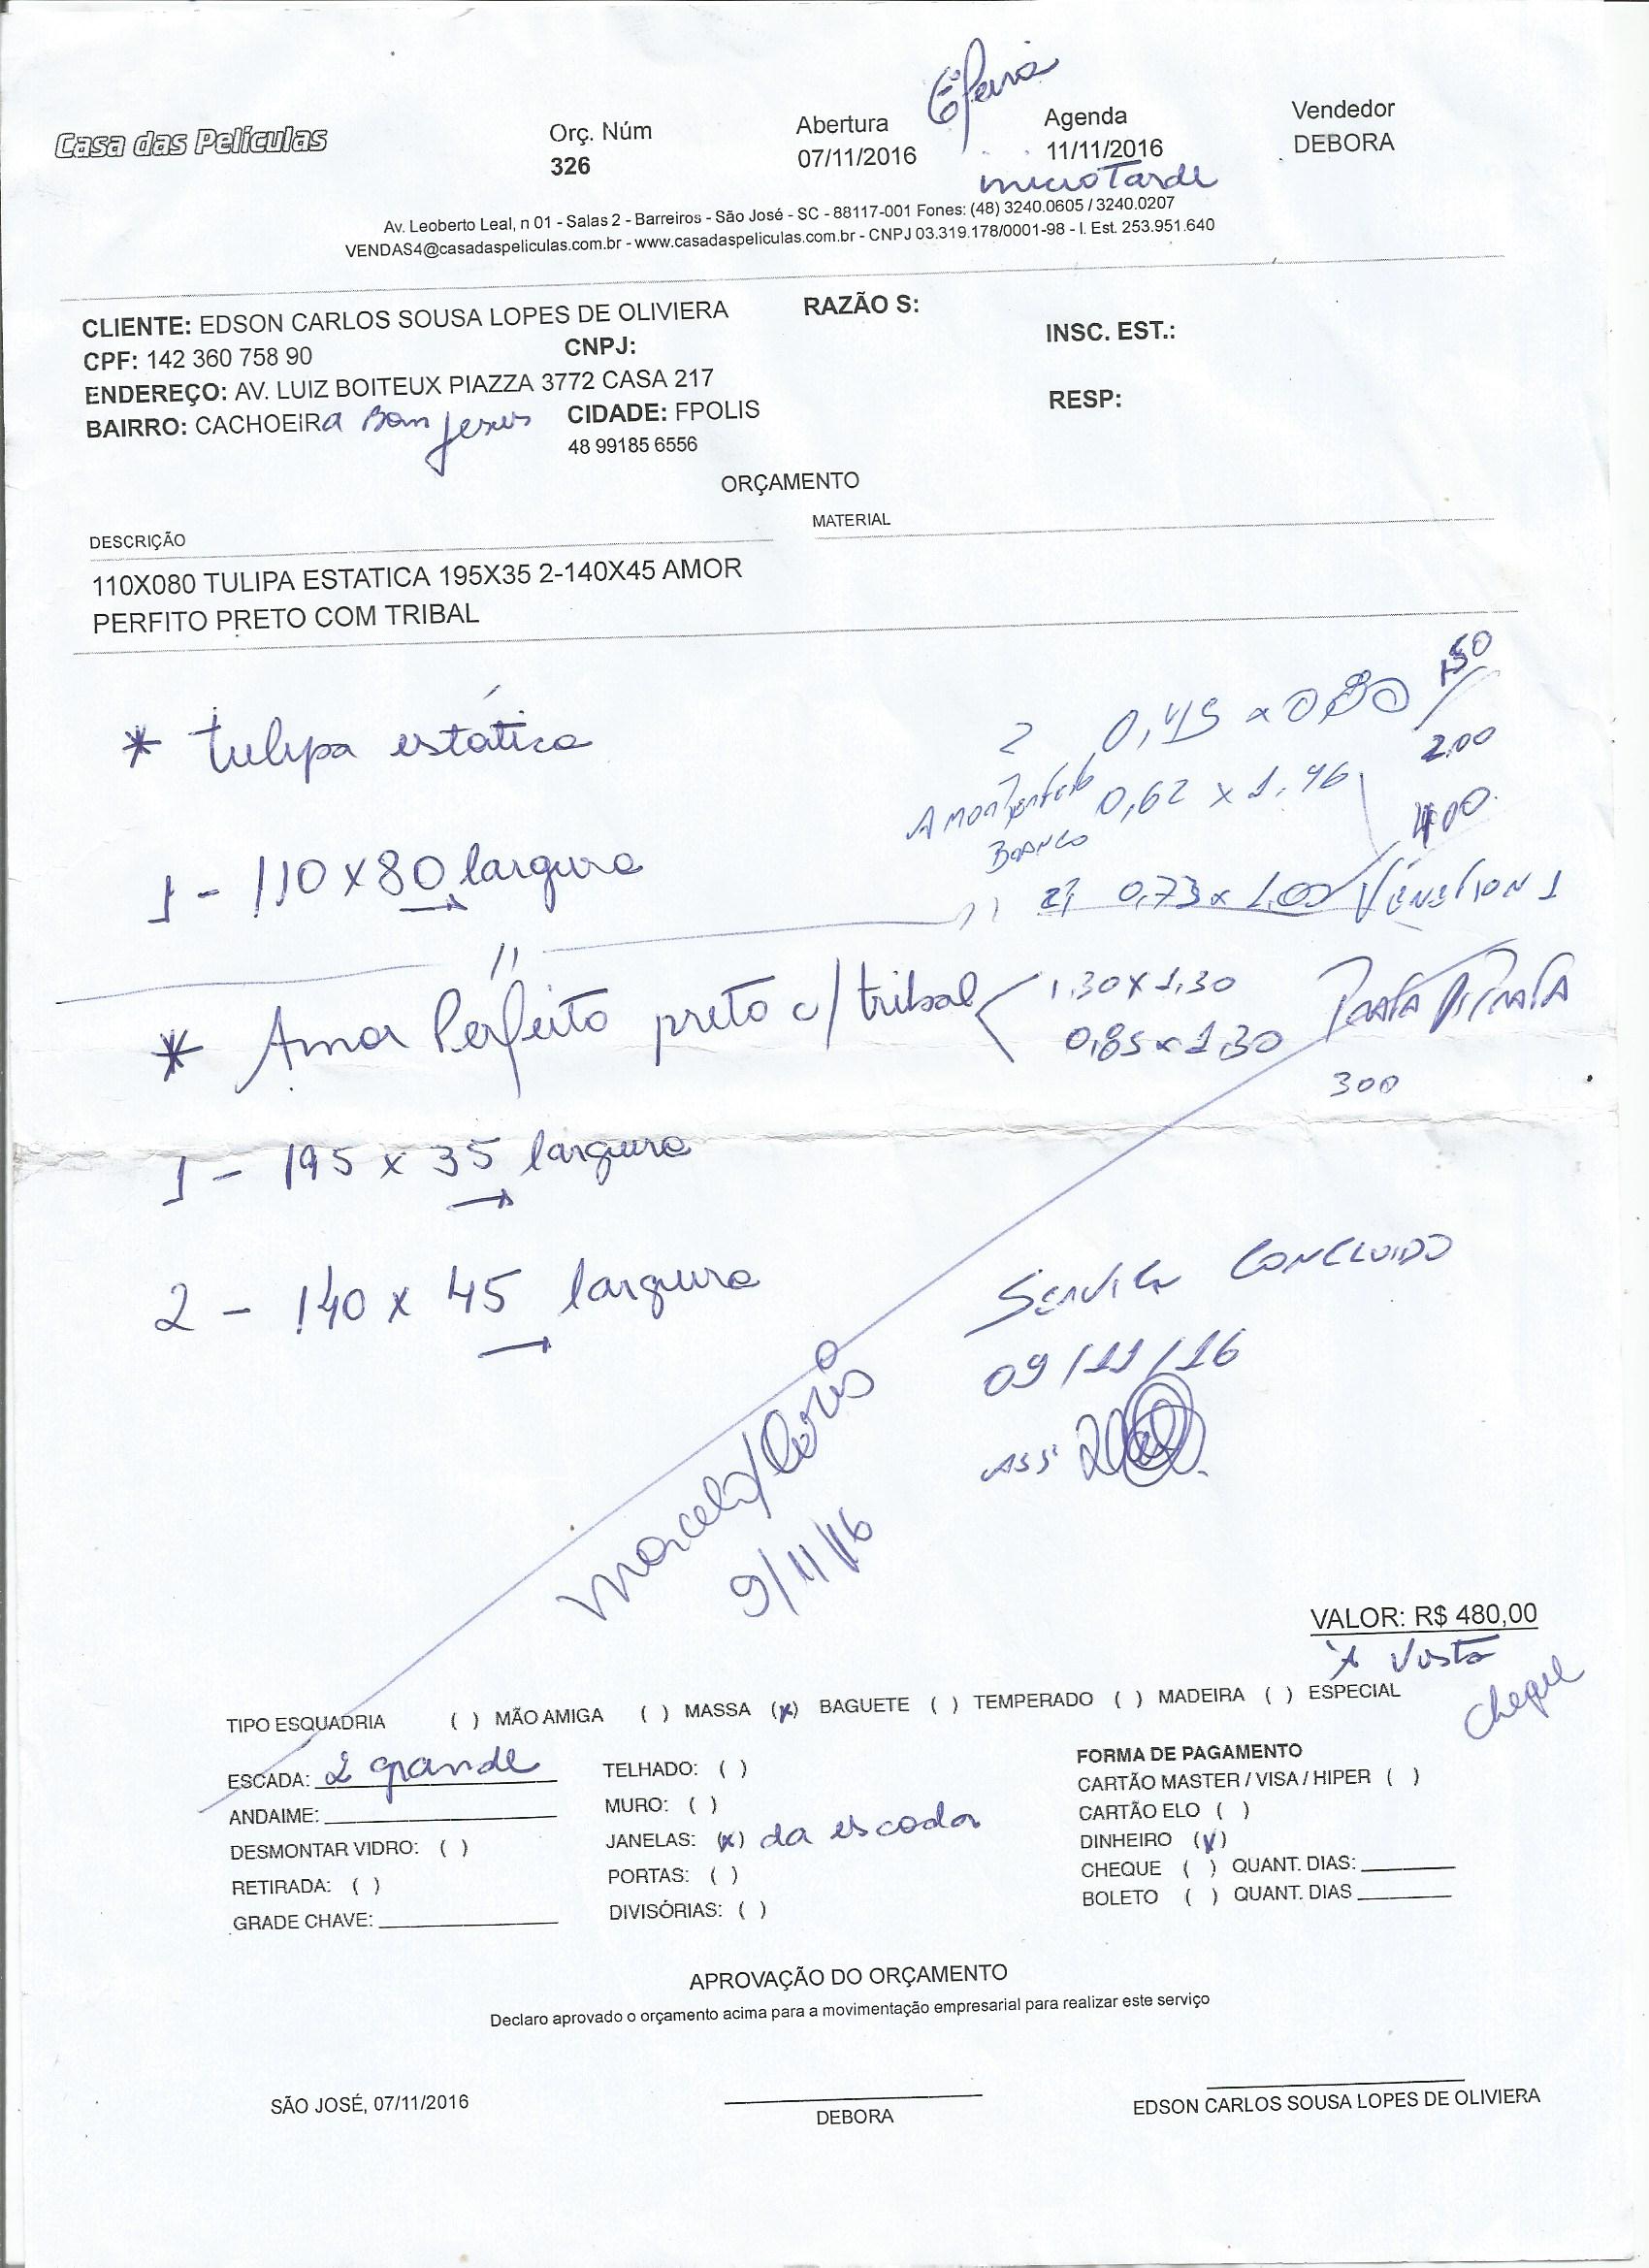 Casa das Películas
Orç. Núm
326
Abertura
07/11/2016
6ª feira
Agenda
11/11/2016
Vendedor
DEBORA
Tarde
Av. Leoberto Leal, n 01 - Salas 2 - Barreiros - São José - SC - 88117-001 Fones: (48) 3240.0605 / 3240.0207
VENDAS4@casadaspeliculas.com.br - www.casadaspeliculas.com.br - CNPJ 03.319.178/0001-98 - I. Est. 253.951.640
CLIENTE: EDSON CARLOS SOUSA LOPES DE OLIVIERA RAZÃO S:
CPF: 142 360 758 90 CNPJ: INSC. EST.:
ENDEREÇO: AV. LUIZ BOITEUX PIAZZA 3772 CASA 217
BAIRRO: CACHOEIRA Bom Jesus CIDADE: FPOLIS RESP:
48 99185 6556
ORÇAMENTO
DESCRIÇÃO MATERIAL
110X080 TULIPA ESTATICA 195X35 2-140X45 AMOR
PERFITO PRETO COM TRIBAL
* tulipa estática
2 0,45 x 080 150
200
0,62 x 1,46
BRANCO
400
1 - 110 x 80 largura
0,73 x 1,00
* Amor Perfeito preto c/ tribal
1,30 x 1,30
0,85 x 1,30
300
1 - 195 x 35 largura
2 - 140 x 45 largura
Serviço CONCLUIDO
09/11/16
ASS
9/11/16
VALOR: R$ 480,00
À Vista
cheque
TIPO ESQUADRIA ( ) MÃO AMIGA ( ) MASSA (x) BAGUETE ( ) TEMPERADO ( ) MADEIRA ( ) ESPECIAL
ESCADA: 2 grande
ANDAIME:
DESMONTAR VIDRO: ( )
RETIRADA: ( )
GRADE CHAVE:
TELHADO: ( )
MURO: ( )
JANELAS: (x) da escada
PORTAS: ( )
DIVISÓRIAS: ( )
FORMA DE PAGAMENTO
CARTÃO MASTER / VISA / HIPER ( )
CARTÃO ELO ( )
DINHEIRO (x)
CHEQUE ( ) QUANT. DIAS:
BOLETO ( ) QUANT. DIAS
APROVAÇÃO DO ORÇAMENTO
Declaro aprovado o orçamento acima para a movimentação empresarial para realizar este serviço
SÃO JOSÉ, 07/11/2016
DEBORA
EDSON CARLOS SOUSA LOPES DE OLIVIERA